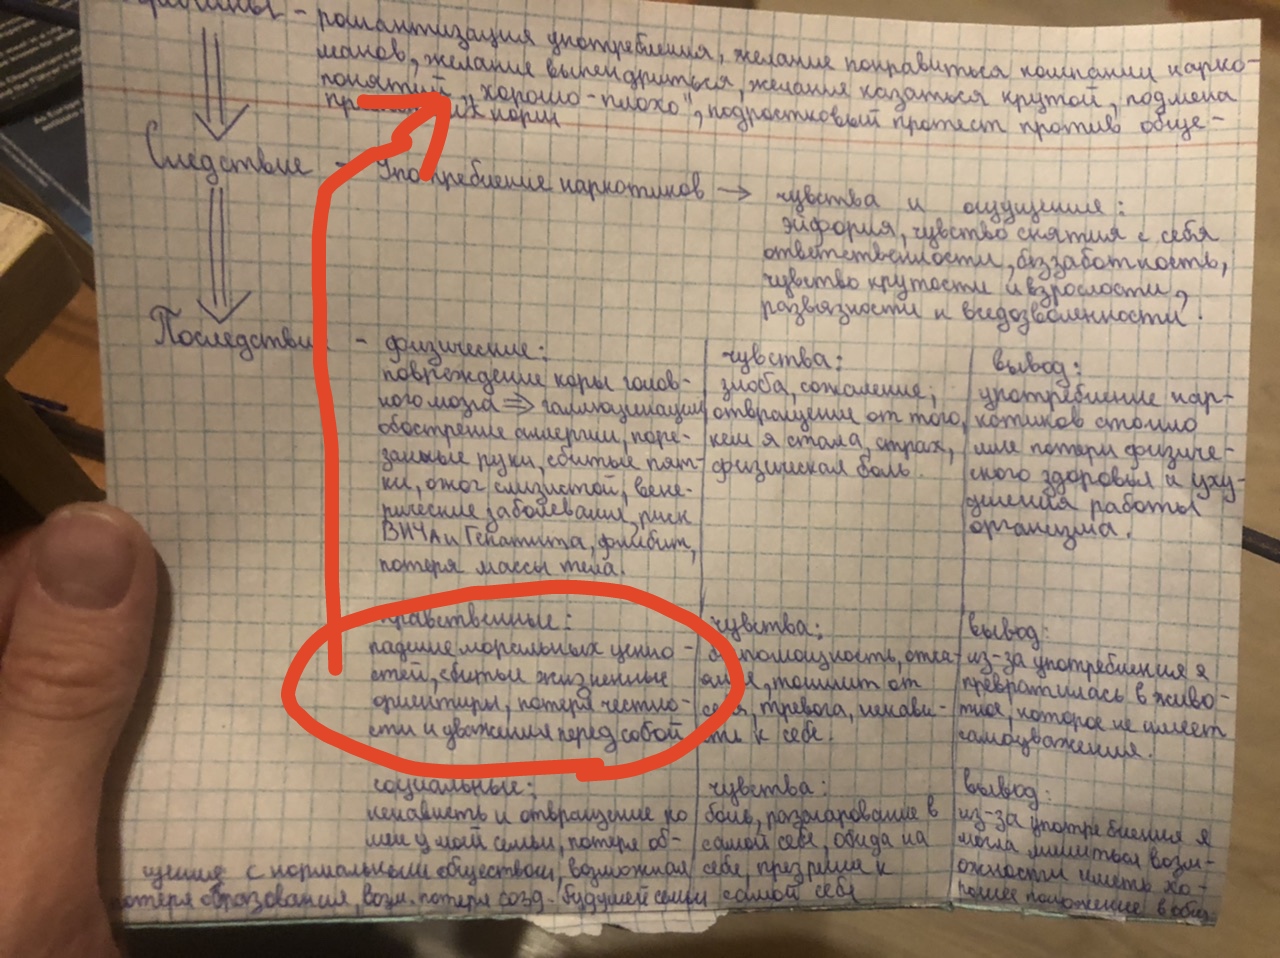 - романтизация употребления, желание понравиться компании нарко-
манов, желание выпендриться, желания казаться крутой, подмена
понятий „хорошо-плохо", подростковый протест против обще-
норм
Следствие - Употребление наркотиков → чувства и ощущения:
эйфория, чувство снятия с себя
ответственности, беззаботность,
чувство крутости и взрослости,
развязности и вседозволенности.
Последствия - физические:
повреждение коры голов-
ного мозга ⇒ галлюцинации
обострение аллергии, поре-
занные руки, сбитые пят-
ки, ожог слизистой, вене-
рические заболевания, риск
ВИЧА и Гепатита, флибит,
потеря массы тела.
чувства:
злоба, сожаление,
отвращение от того,
кем я стала, страх,
физическая боль.
вывод:
употребление нар-
котиков стоило
мне потери физиче-
ского здоровья и уху-
дшения работы
организма.
нравственные:
падение моральных ценно-
стей, сбитые жизненные
ориентиры, потеря честно-
сти и уважения перед собой
чувства:
беспомощность, отча-
яние, тошнит от
себя, тревога, ненави-
сть к себе.
вывод:
из-за употребления я
превратилась в живо-
тное, которое не имеет
самоуважения.
социальные:
ненависть и отвращение ко
мне у моей семьи, потеря об-
щения с нормальным обществом, возможная
потеря образования, возм. потеря созд. будущей семьи
чувства:
боль, разочарование в
самой себе, обида на
себя, презрение к
самой себе
вывод:
из-за употребления я
могла лишиться возм-
ожности иметь хо-
рошее положение в общ.